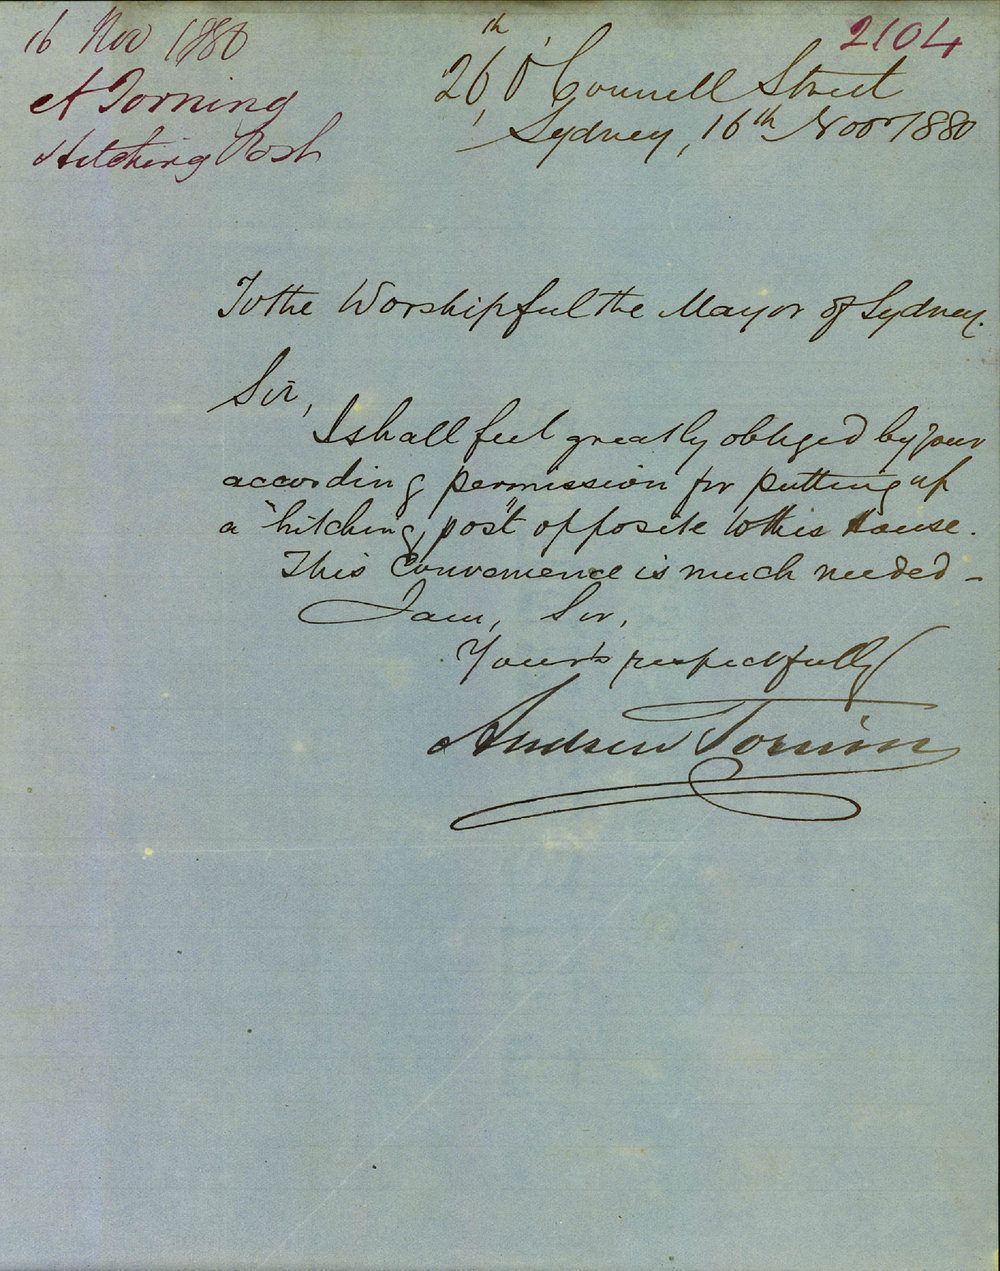 16 Nov 1880
A Torning
Hitching Post
2104
26 O'Connell Street
Sydney, 16th Novr 1880
To the Worshipful the Mayor of Sydney.
Sir,
I shall feel greatly obliged by your
according permission for putting up
a "hitching post" opposite to this House.
This Convenience is much needed -
I am, Sir,
Your's respectfully
Andrew Torning